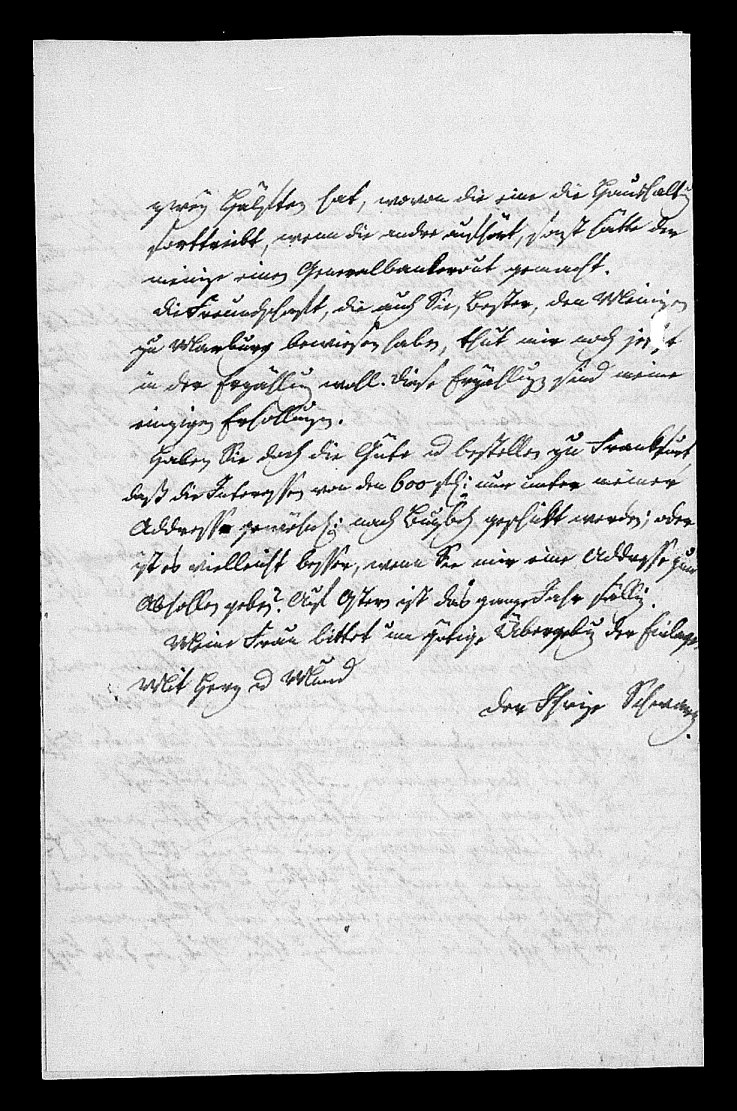 zwey Hälften hat, wovon die eine die Haushaltung
forttreibt, wenn die andre aufhört, sonst hätte der
meinige einen Generalbankerout gemacht.
Die Freundschaft, die auch Sie, Bester, den Meinigen
zu Marburg bewiesen haben, thut mir noch jetzt
in der Erzählung wohl. Diese Erzählungen sind meine
einzigen Erhollungen.
Haben Sie doch die Güte u bestellen zu Frankfurt,
daß die Interessen von den 600 fl. nur unter meiner
Addresse nach Butzbach geschikt werden; oder
ist es vielleicht besser, wenn Sie mir eine Addresse zum
Abhollen geben? Auf Ostern ist das ganze Jahr fällig.
Meine Frau bittet um gütige Übergebung der Einlage.
Mit Herz u Mund
der Ihrige Schwarz.